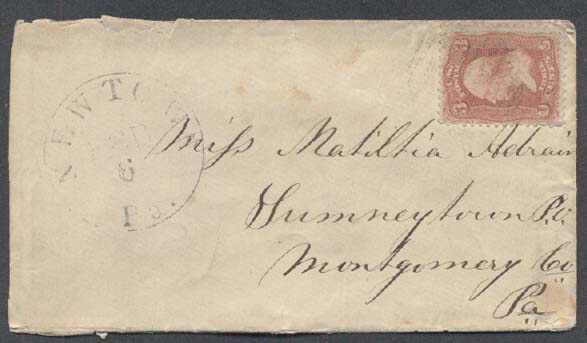 NEWTOWN
6
Pa.
Miss Matiltia Adrain
Sumneytown P.O.
Montgomery Co
Pa
3 3